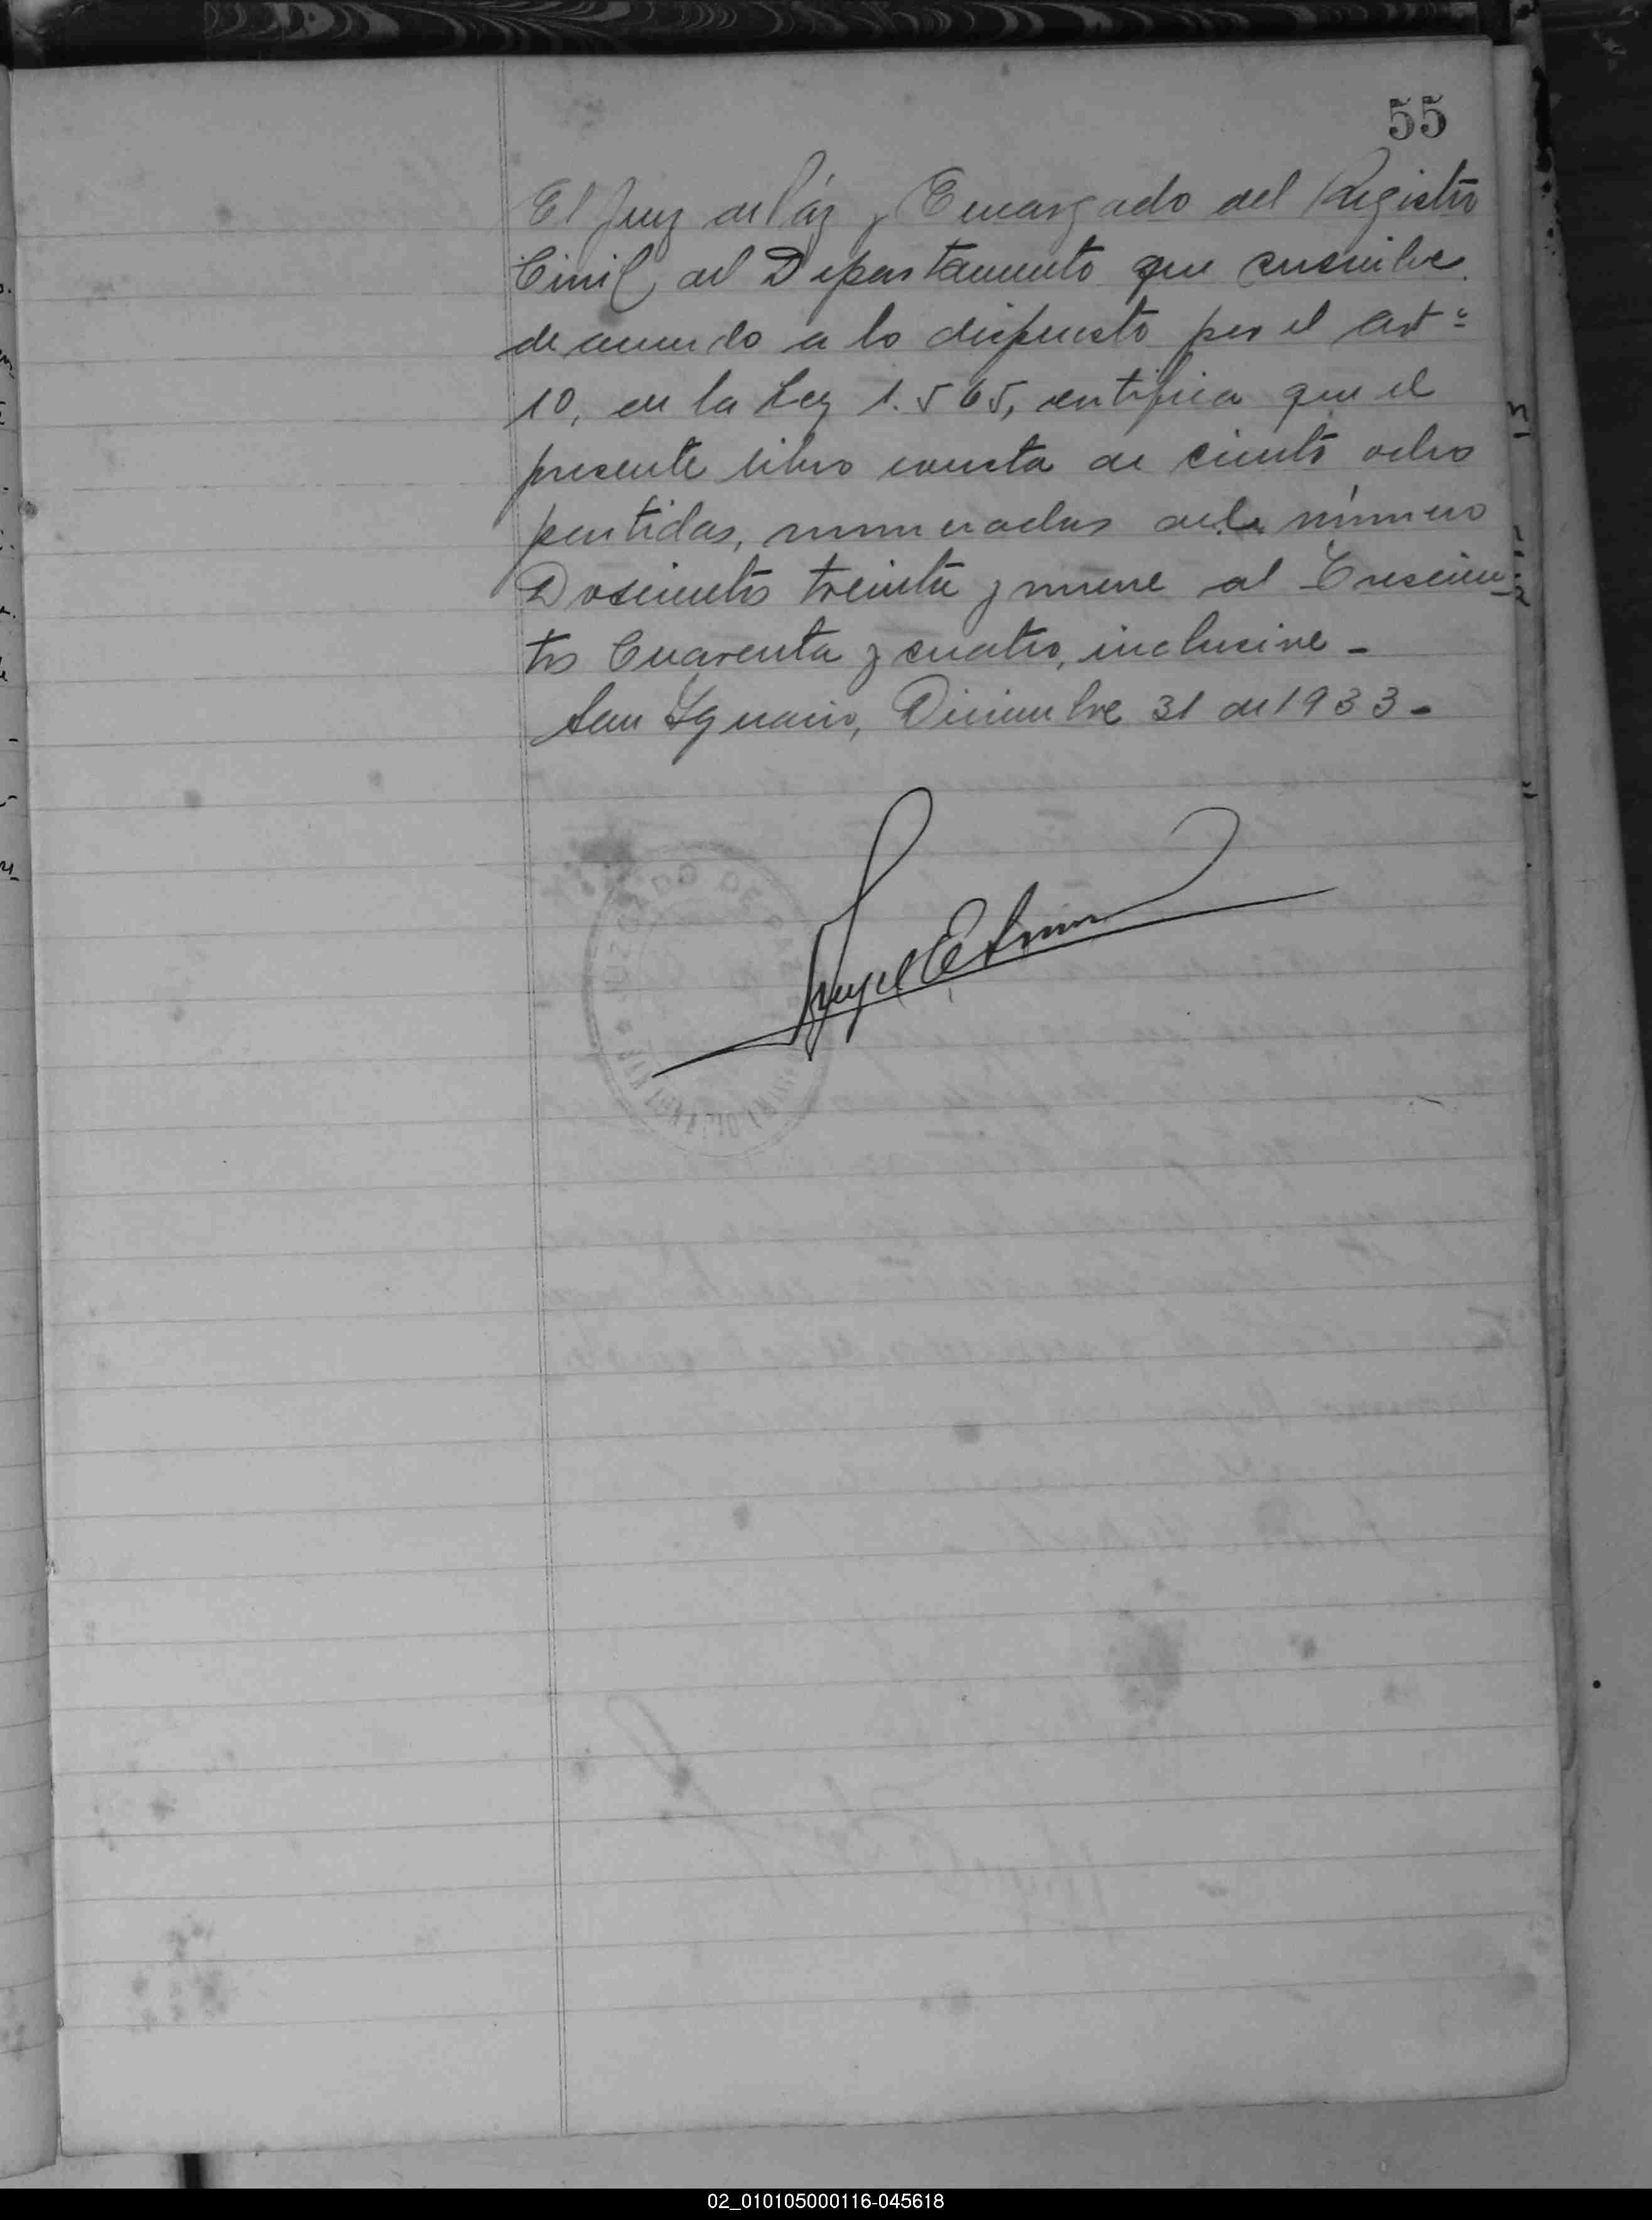 55
El Juez de Páz y Encargado del Registro
Civil del Departamento que suscribe
de acuerdo a lo dispuesto por el art º
10, en la Ley 1.565, certifica que el
presente libro consta de ciento ocho
partidas, numeradas del número
Doscientos treinta y nueve al Trescien-
tos Cuarenta y cuatro, inclusive -
San Ygnacio, Diciembre 31 de 1933 -
JUZGADO DE PAZ
SAN IGNACIO
Angel E
02_010105000116-045618